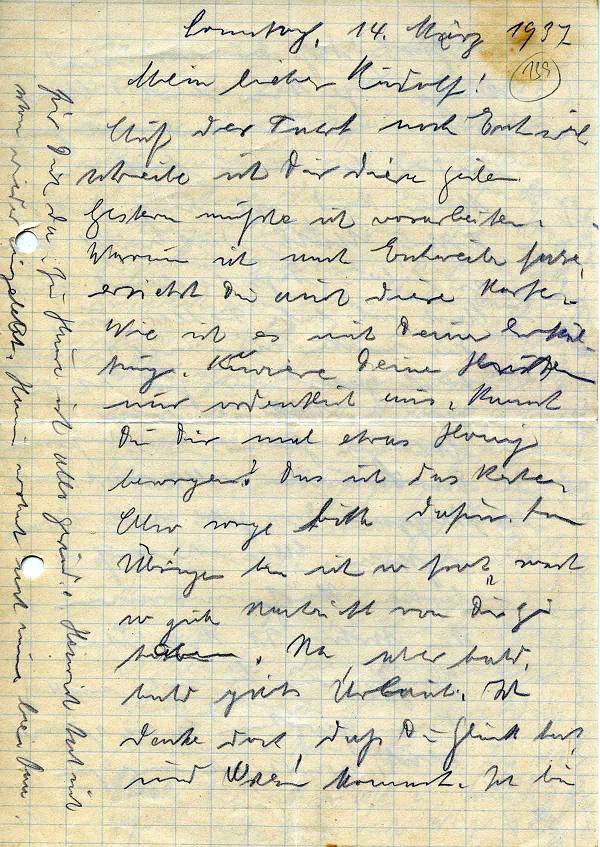 Sonntag, 14. März 1937
139
Mein lieber Rudolf!
Auf der Fahrt nach
schreibe ich Dir diese Zeilen
Gestern mußte ich vorarbeiten.
Warum ich nach fahre,
ersiehst Du aus diese Karte.
Wie ist es mit Deiner Erkäl-
tung. Kuriere Deine Husten
nur ordentlich aus. Kannst
Du Dir mal etwas Honig
besorgen! Das ist das Beste.
Also sorge bitte dafür. Im
Übrigen bin ich so froh,
so gute Nachricht von Dir zu
haben. Na, aber bald,
bald gibts Urlaub. Ich
denke doch, daß Du Glück hast
und kommst. Ich bin
für Dich da. Zu Hause ist alles gesund. Heinrich hat sich
schon wieder eingelebt. wohnt